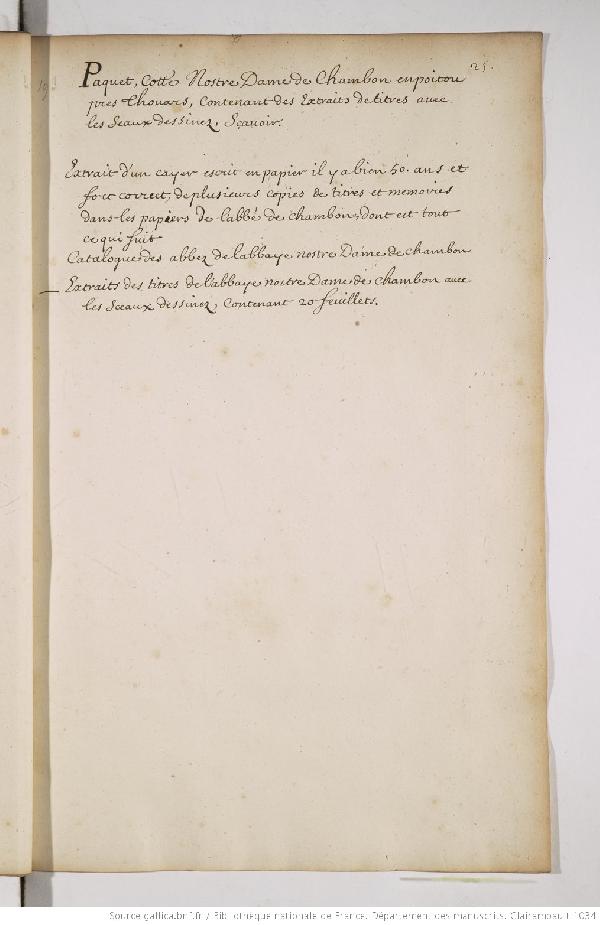 25.
Paquet, Cotté Nostre Dame de Chambon en poitou
pres thouars, Contenant des Extraits de titres avec
les Seaux dessinez, Sçauoir.
Extrait d'un cayer escrit en papier il y a bien 50. ans et
fort correct, de plusieurs copies de titres et memoires
dans les papiers de l'abbé de chambon, dont est tout
ce qui suit
Catalogue des abbez de l'abbaye nostre Dame de chambon
Extraits des titres de l'abbaye nostre Dame de chambon auec
les Sceaux dessinez, Contenant 20 feuillets.
Source gallica.bnf.fr / Bibliothèque nationale de France. Département des manuscrits. Clairambault 1034